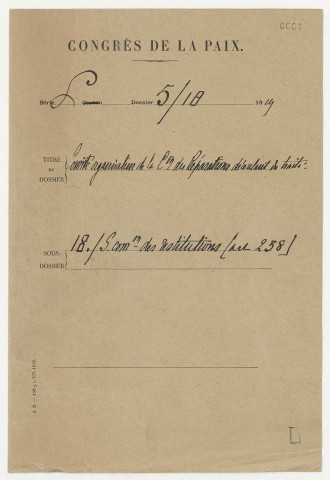 0001
CONGRÈS DE LA PAIX.
Série L Dossier 5/18 1919
TITRE DU DOSSIER Comité organisation de la Con des Réparations découlant du traité.
SOUS-DOSSIER 18./ S. comon des restitutions (art 238)
L